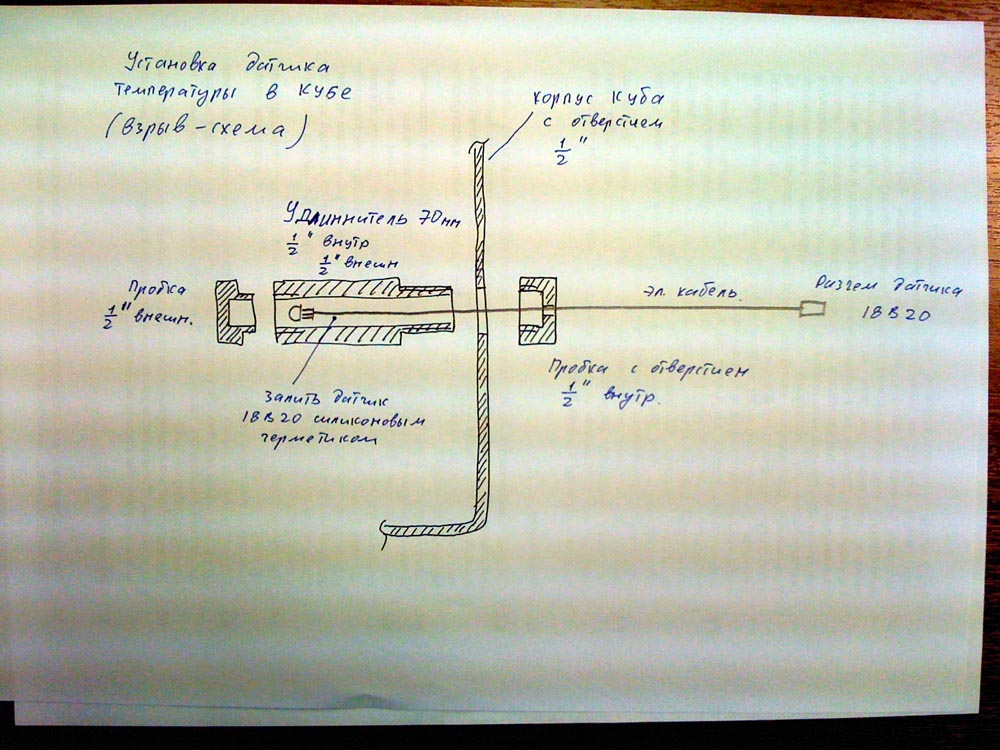 Установка датчика
температуры в кубе
(взрыв-схема)
корпус куба
с отверстием
1/2"
Удлиннитель 70мм
1/2" внутр
1/2" внешн
Пробка
1/2" внешн.
эл. кабель.
Разъем датчика
18B20
Пробка с отверстием
1/2" внутр.
залить датчик
18B20 силиконовым
герметиком